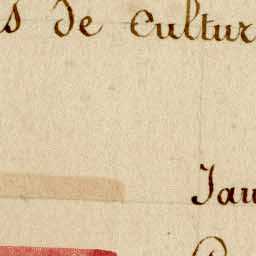 s de cultur
Jau